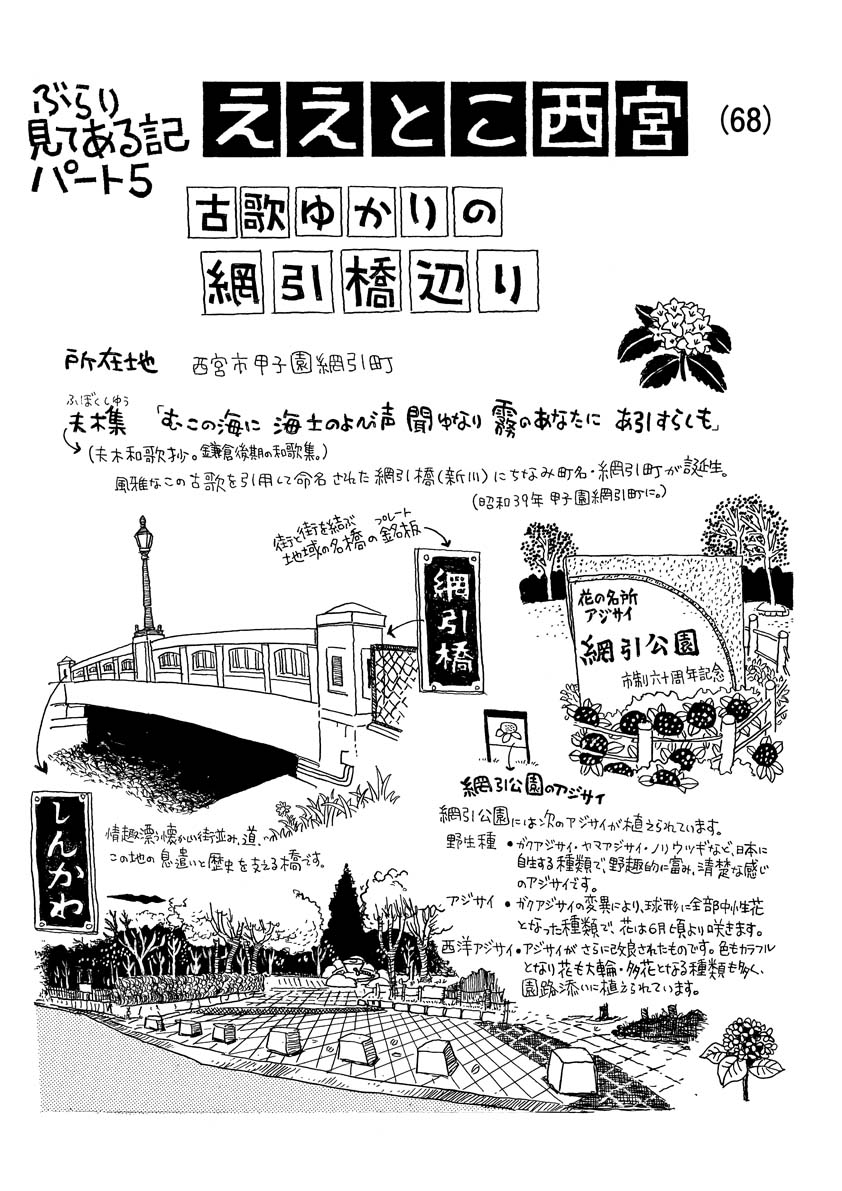 ぶらり
見てある記
パート5
ええとこ西宮
(68)
古歌ゆかりの
網引橋辺り
所在地 西宮市甲子園網引町
ふぼくしゅう
夫木集 「むこの海に 海士のよび声 聞ゆなり 霧のあなたに あ引すらしも」
(夫木和歌抄。鎌倉後期の和歌集。)
風雅なこの古歌を引用して命名された網引橋(新川)にちなみ町名・網引町が誕生。
(昭和39年 甲子園網引町に。)
街と街を結ぶ
プレート
地域の名橋の銘板
網引橋
花の名所
アジサイ
網引公園
市制六十周年記念
しんかわ
情趣漂う懐かしい街並み、道、
この地の息遣いと歴史を支える橋です。
網引公園のアジサイ
網引公園には次のアジサイが植えられています。
野生種 ・ガクアジサイ・ヤマアジサイ・ノリウツギなど、日本に
自生する種類で、野趣的に富み、清楚な感じ
のアジサイです。
アジサイ ・ガクアジサイの変異により、球形に全部中性花
となった種類で、花は6月頃より咲きます。
西洋アジサイ・アジサイがさらに改良されたものです。色もカラフル
となり花も大輪・多花となる種類も多く、
園路添いに植えられています。